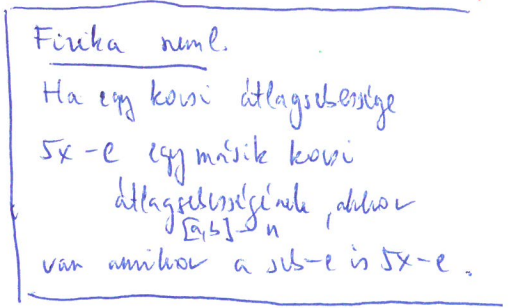 Fizika neml.
Ha egy kocsi átlagsebessége
5x-e egy másik kocsi
átlagsebességének, akkor
[a,b]-n
van amikor a seb-e is 5x-e.